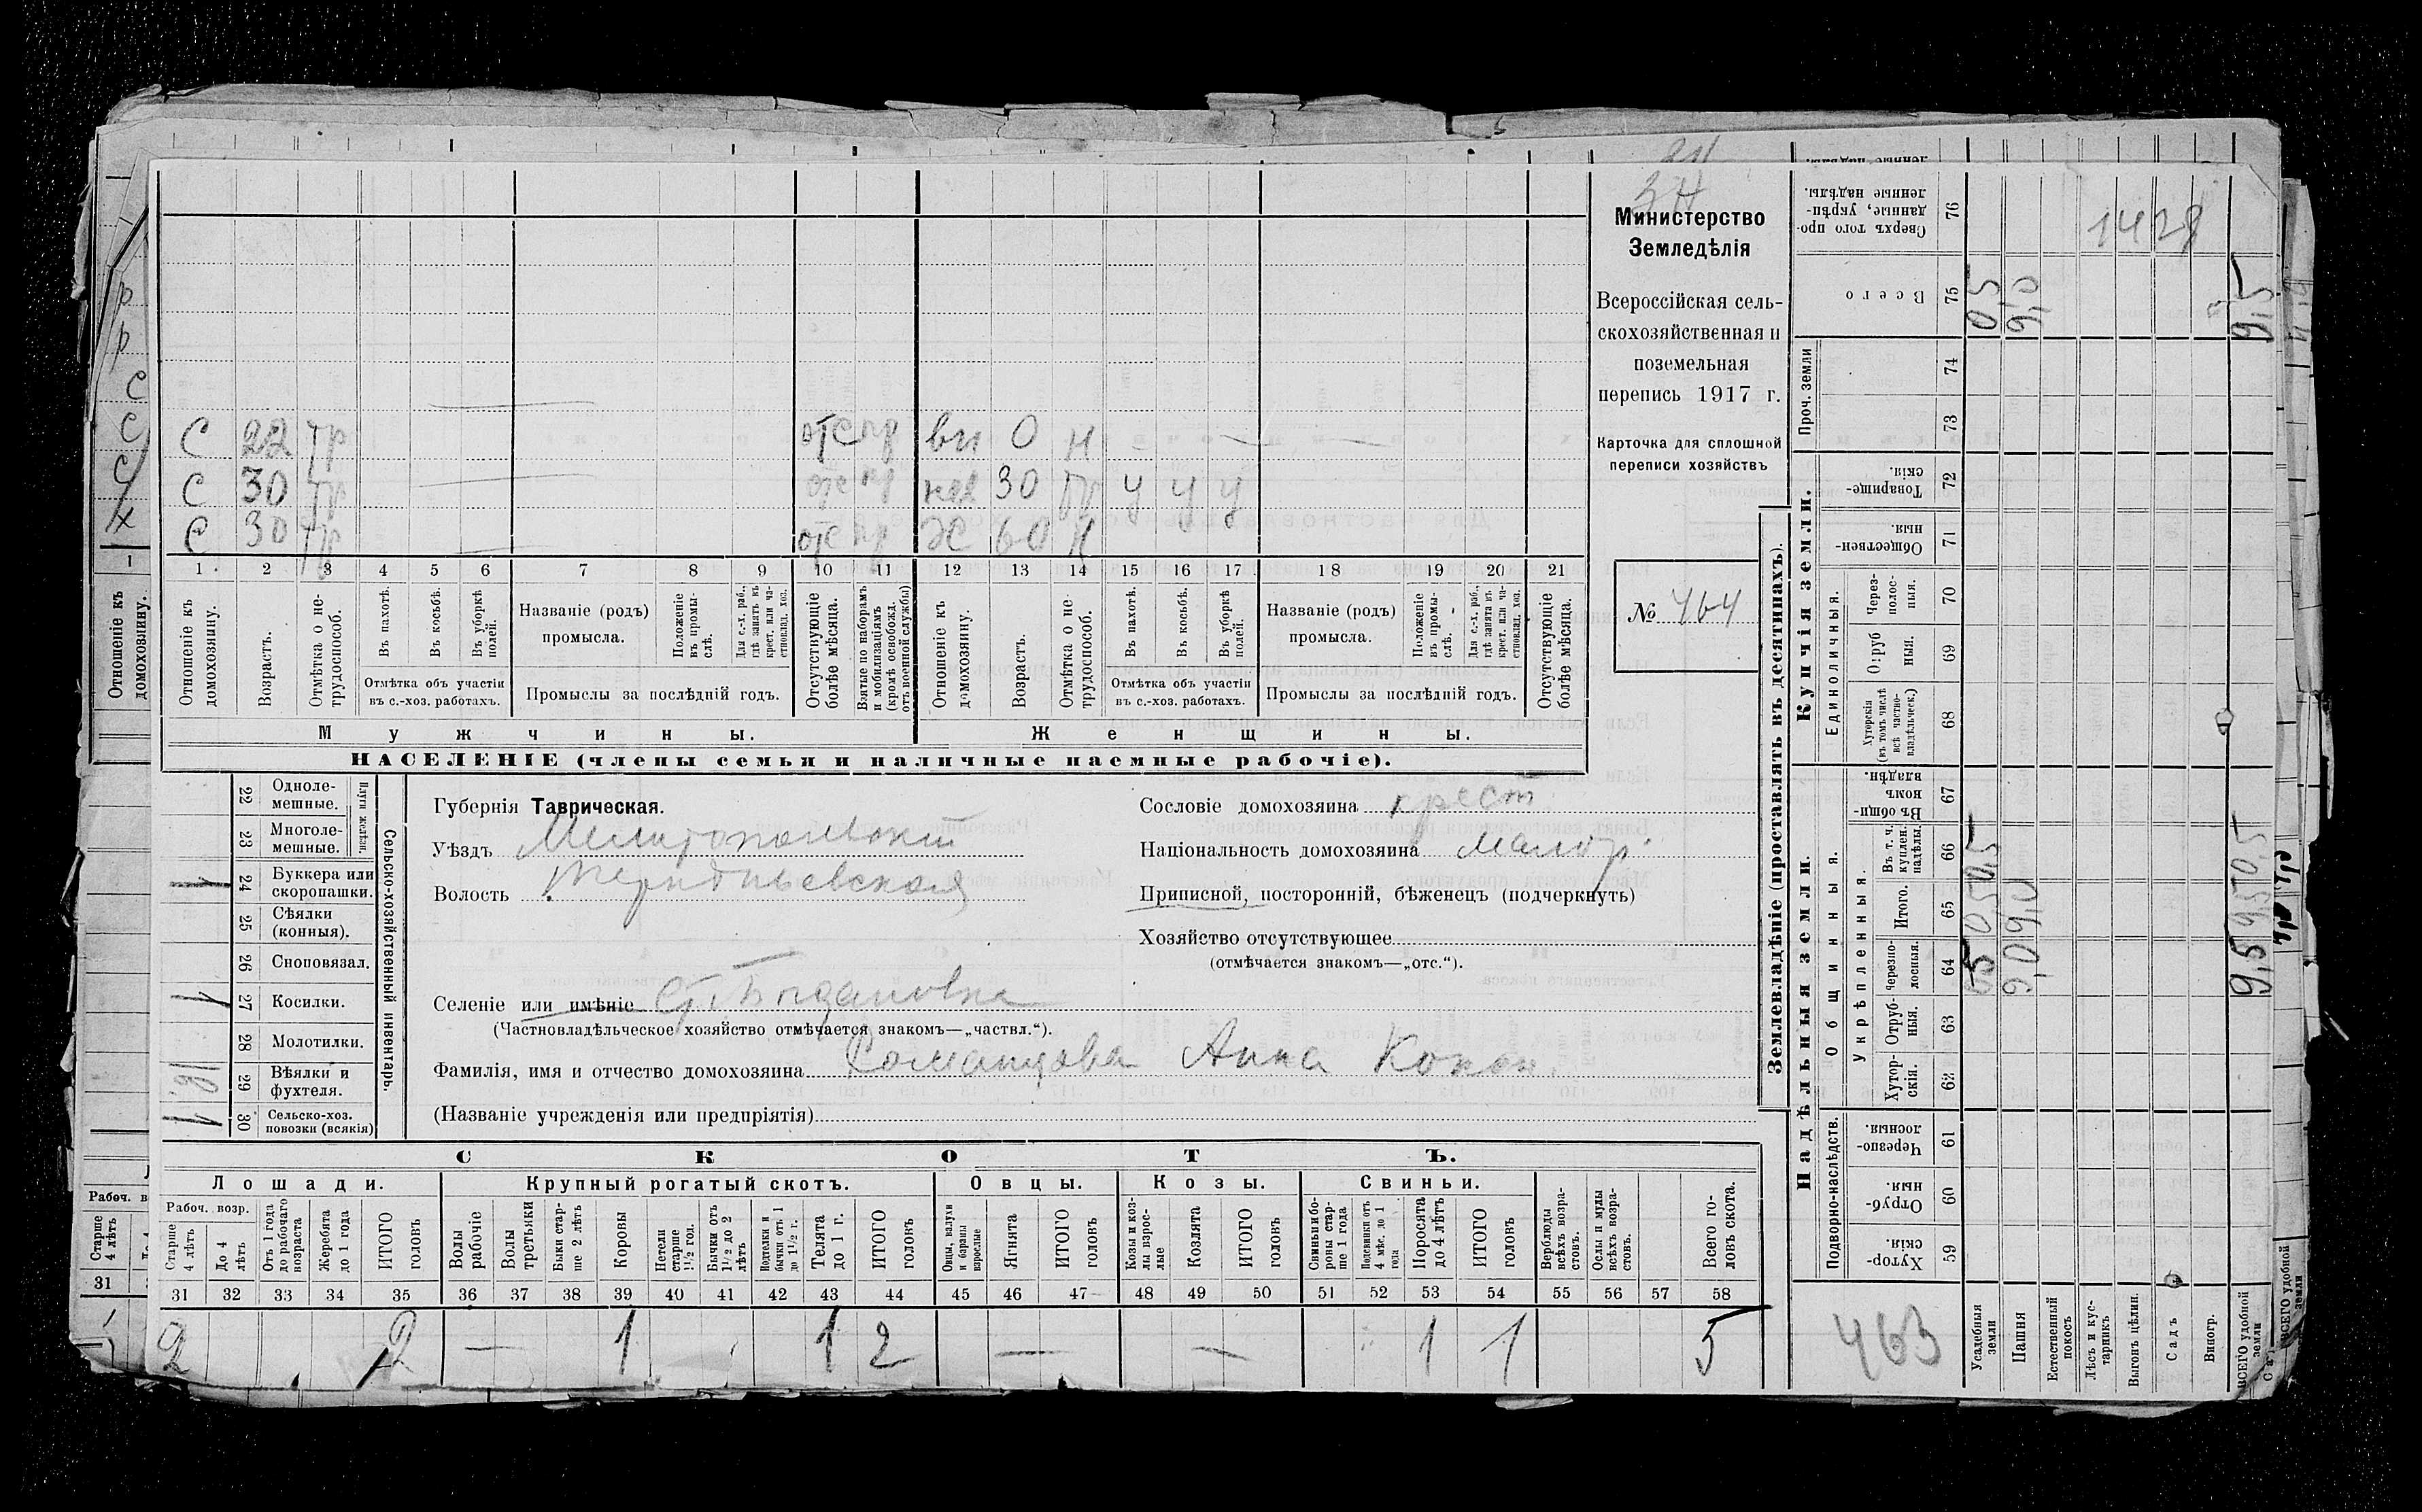 34
Министерство
Земледѣлія
Всероссійская сель-
скохозяйственная и
поземельная
перепись 1917 г.
Карточка для сплошной
переписи хозяйствъ
№ 464
С 22 тр отс пр вн 0 н
С 30 тр отс пр нев 30 тр у у у
С 30 тр отс пр Ж 60 н
1 2 3 4 5 6 7 8 9 10 11 12 13 14 15 16 17 18 19 20 21
Отношеніе къ домохозяину.
Возрастъ.
Отмѣтка о не-трудоспособ.
Въ пахотѣ.
Въ косьбѣ.
Въ уборкѣ полей.
Отмѣтка объ участіи
въ с.-хоз. работахъ.
Названіе (родъ)
промысла.
Положеніе въ промы-слѣ.
Для с.-х. раб., гдѣ занятъ въ крест. или ча-стновлад. хоз.
Промыслы за послѣдній годъ.
Отсутствующіе болѣе мѣсяца.
Взятые по наборамъ и мобилизаціямъ (кромѣ освобожд. отъ военной службы)
Отношеніе къ домохозяину.
Возрастъ.
Отмѣтка о не-трудоспособ.
Въ пахотѣ.
Въ косьбѣ.
Въ уборкѣ полей.
Отмѣтка объ участіи
въ с.-хоз. работахъ.
Названіе (родъ)
промысла.
Положеніе въ промы-слѣ.
Для с.-х. раб., гдѣ занята въ крест. или ча-стновлад. хоз.
Промыслы за послѣдній годъ.
Отсутствующіе болѣе мѣсяца.
Мужчины. Женщины.
НАСЕЛЕНІЕ (члены семьи и наличные наемные рабочіе).
22 Одноле-мешные.
23 Многоле-мешные.
Плуги желѣзн.
24 Буккера или скоропашки. 1
25 Сѣялки (конныя).
26 Сноповязал.
27 Косилки. 1
28 Молотилки.
29 Вѣялки и фухтеля.
30 Сельско-хоз. повозки (всякія) 1
Сельско-хозяйственный инвентарь.
Губернія Таврическая.
Уѣздъ Мелитопольскій
Волость Терпѣньевская
Селеніе или имѣніе Ст. Богдановка
(Частновладѣльческое хозяйство отмѣчается знакомъ—„частвл.“).
Фамилія, имя и отчество домохозяина Романцова Анна Конон.
(Названіе учрежденія или предпріятія)
Сословіе домохозяина крест
Національность домохозяина малор.
Приписной, посторонній, бѣженецъ (подчеркнуть)
Хозяйство отсутствующее
(отмѣчается знакомъ—„отс.“).
СКОТЪ.
Лошади. Крупный рогатый скотъ. Овцы. Козы. Свиньи.
Рабоч. возр.
Старше 4 лѣтъ
До 4 лѣтъ
Отъ 1 года до рабочаго возраста
Жеребята до 1 года
ИТОГО головъ
Волы рабочіе
Волы третьяки
Быки стар-ше 2 лѣтъ
Коровы
Нетели старше 1½ год.
Бычки отъ 1½ до 2 лѣтъ
Подтелки и бычки отъ 1 до 1½ г.
Телята до 1 г.
ИТОГО головъ
Овцы, валухи и бараны взрослые
Ягнята
ИТОГО головъ
Козы и коз-лы взрос-лые
Козлята
ИТОГО головъ
Свиньи бо-ровы стар-ше 1 года
Подсвинки отъ 4 мѣс. до 1 года
Поросята до 4 лѣтъ
ИТОГО головъ
Верблюды всѣхъ возра-стовъ.
Ослы и мулы всѣхъ возра-стовъ.
Всего го-ловъ скота.
31 32 33 34 35 36 37 38 39 40 41 42 43 44 45 46 47 48 49 50 51 52 53 54 55 56 57 58
2 2 — 1 1 2 — — 1 1 5
Землевладѣніе (проставлять въ десятинахъ).
Купчія земли.
Надѣльныя земли.
Сверхъ того про-данные, укрѣп-ленные надѣлы. 76
1428
Всего 75 0,5 9,0 9,5
Проч. земли 74 73
Товарище-скія. 72
Обществен-ныя. 71
Единоличныя.
Через-полос-ныя. 70
Отруб-ныя. 69
Хуторскія (въ томъ числѣ всѣ частно-владѣльческ.) 68
Общинныя.
Въ общи-номъ владѣн. 67
Укрѣпленныя.
Въ т. ч. куплен. надѣлы. 66 0,5 0,5
Итого. 65 0,5 9,0 9,5
Черезпо-лосныя. 64 0,5 9,0 9,5
Отруб-ныя. 63
Хутор-скія. 62
Подворно-наслѣдств.
Черезпо-лосныя. 61
Отруб-ныя. 60
Хутор-скія. 59
463
Усадебныя земли
Пашня
Естественный покосъ
Лѣсъ и кус-тарникъ
Выгонъ цѣлин.
Садъ
Виногр.
ВСЕГО удобной земли